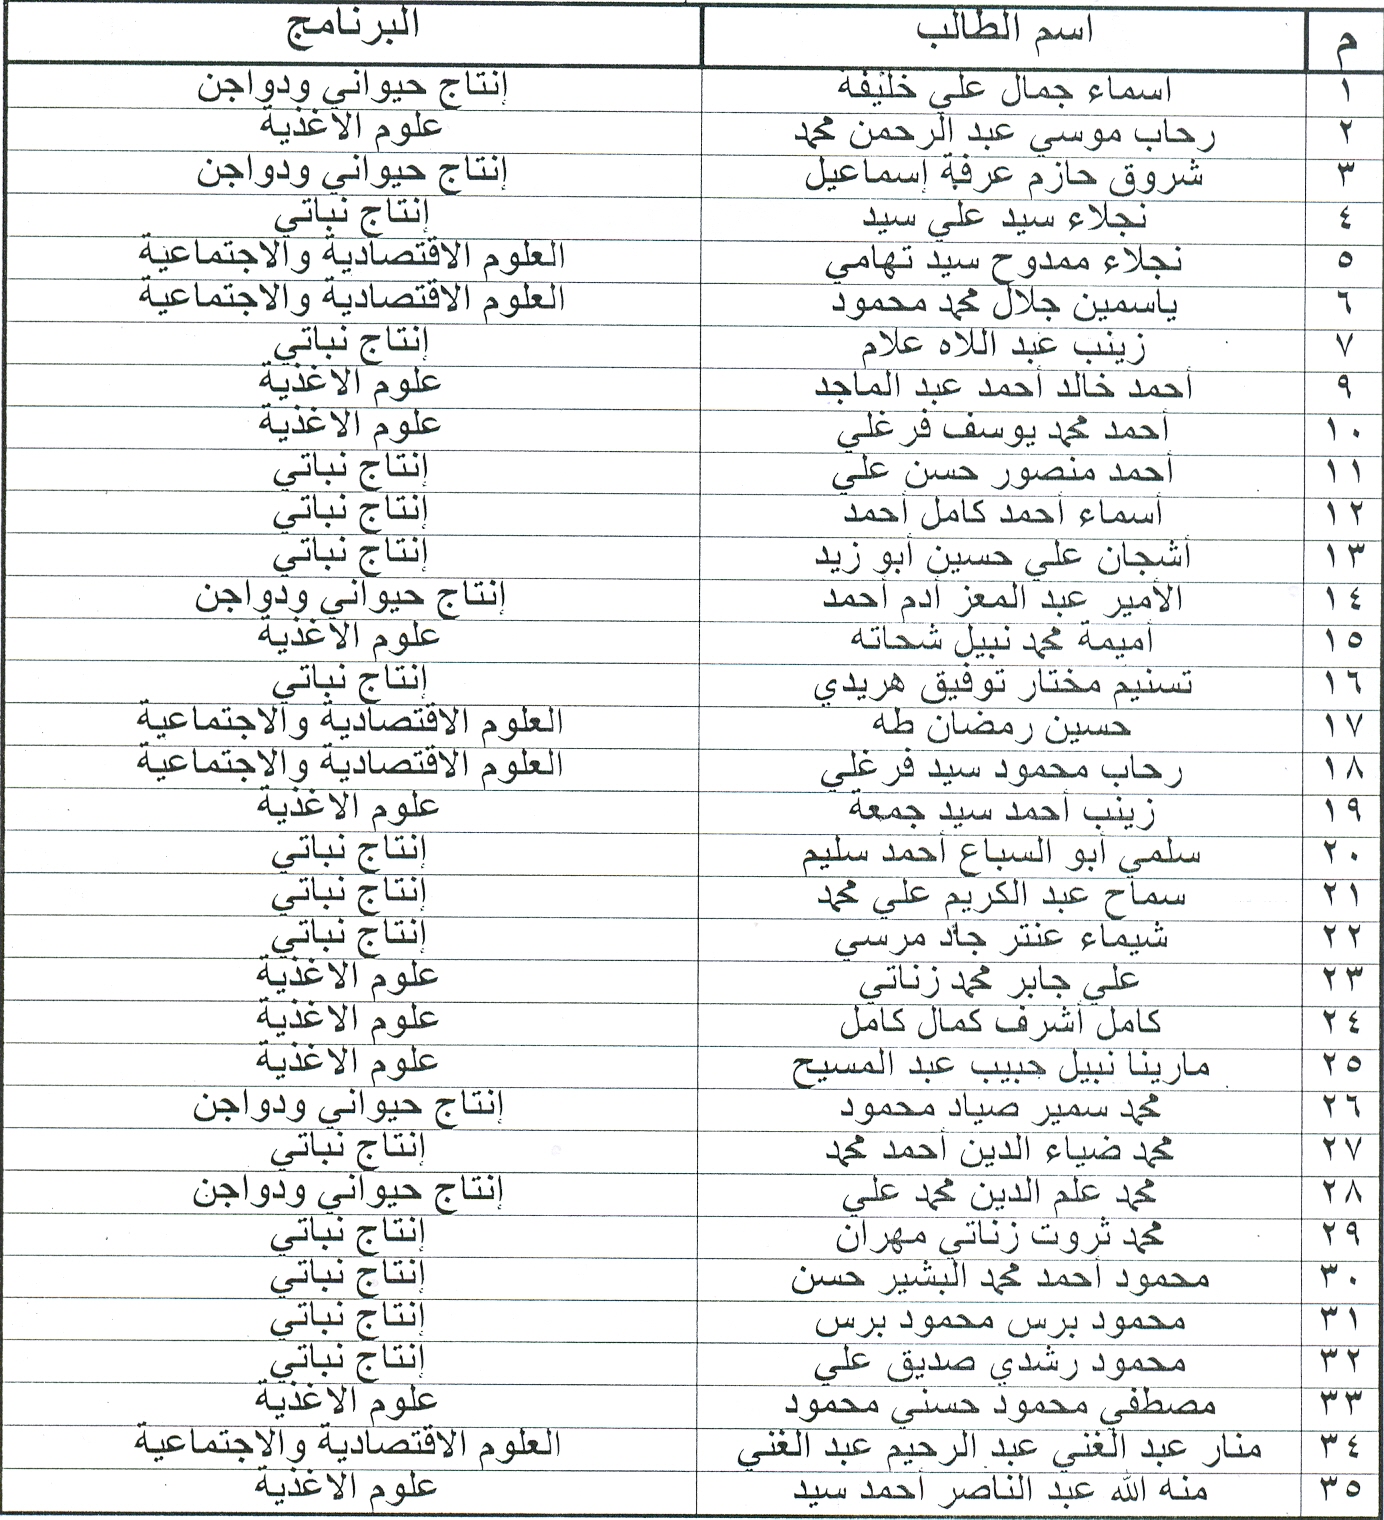 م اسم الطالب البرنامج
١ اسماء جمال علي خليفة إنتاج حيواني ودواجن
٢ رحاب موسي عبد الرحمن محمد علوم الاغذية
٣ شروق حازم عرفة إسماعيل إنتاج حيواني ودواجن
٤ نجلاء سيد علي سيد إنتاج نباتي
٥ نجلاء ممدوح سيد تهامي العلوم الاقتصادية والاجتماعية
٦ ياسمين جلال محمد محمود العلوم الاقتصادية والاجتماعية
٧ زينب عبد اللاه علام إنتاج نباتي
٩ أحمد خالد أحمد عبد الماجد علوم الاغذية
١٠ أحمد محمد يوسف فرغلي علوم الاغذية
١١ أحمد منصور حسن علي إنتاج نباتي
١٢ أسماء أحمد كامل أحمد إنتاج نباتي
١٣ أشجان علي حسين أبو زيد إنتاج نباتي
١٤ الأمير عبد المعز أدم أحمد إنتاج حيواني ودواجن
١٥ أميمة محمد نبيل شحاته علوم الاغذية
١٦ تسنيم مختار توفيق هريدي إنتاج نباتي
١٧ حسين رمضان طه العلوم الاقتصادية والاجتماعية
١٨ رحاب محمود سيد فرغلي العلوم الاقتصادية والاجتماعية
١٩ زينب أحمد سيد جمعة علوم الاغذية
٢٠ سلمي أبو السباع أحمد سليم إنتاج نباتي
٢١ سماح عبد الكريم علي محمد إنتاج نباتي
٢٢ شيماء عنتر جاد مرسي إنتاج نباتي
٢٣ علي جابر محمد زناتي علوم الاغذية
٢٤ كامل أشرف كمال كامل علوم الاغذية
٢٥ مارينا نبيل حبيب عبد المسيح علوم الاغذية
٢٦ محمد سمير صياد محمود إنتاج حيواني ودواجن
٢٧ محمد ضياء الدين أحمد محمد إنتاج نباتي
٢٨ محمد علم الدين محمد علي إنتاج حيواني ودواجن
٢٩ محمد ثروت زناتي مهران إنتاج نباتي
٣٠ محمود أحمد محمد البشير حسن إنتاج نباتي
٣١ محمود برس محمود برس إنتاج نباتي
٣٢ محمود رشدي صديق علي إنتاج نباتي
٣٣ مصطفي محمود حسني محمود علوم الاغذية
٣٤ منار عبد الغني عبد الرحيم عبد الغني العلوم الاقتصادية والاجتماعية
٣٥ منه الله عبد الناصر أحمد سيد علوم الاغذية